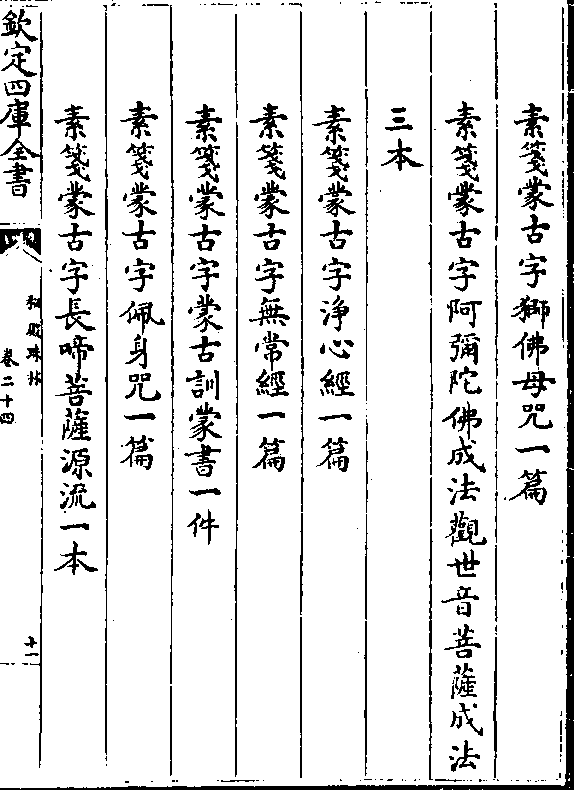 素箋蒙古字獅佛母咒一篇
素箋蒙古字阿彌陀佛成法觀世音菩薩成法
三本
素箋蒙古字淨心經一篇
素箋蒙古字無常經一篇
素箋蒙古字蒙古訓蒙書一件
素箋蒙古字佩身咒一篇
素箋蒙古字長啼菩薩源流一本
欽定四庫全書
秘殿珠林
卷二十四
十一